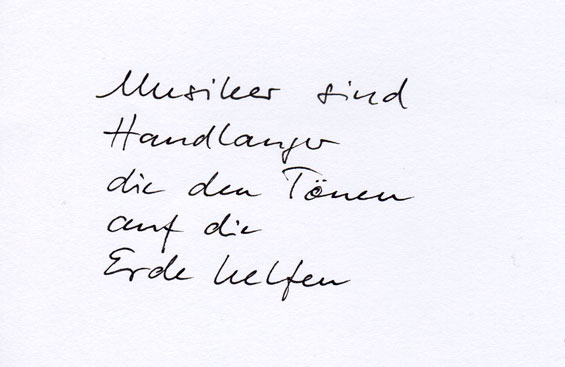 Musiker sind
Handlanger
die den Tönen
auf die
Erde helfen